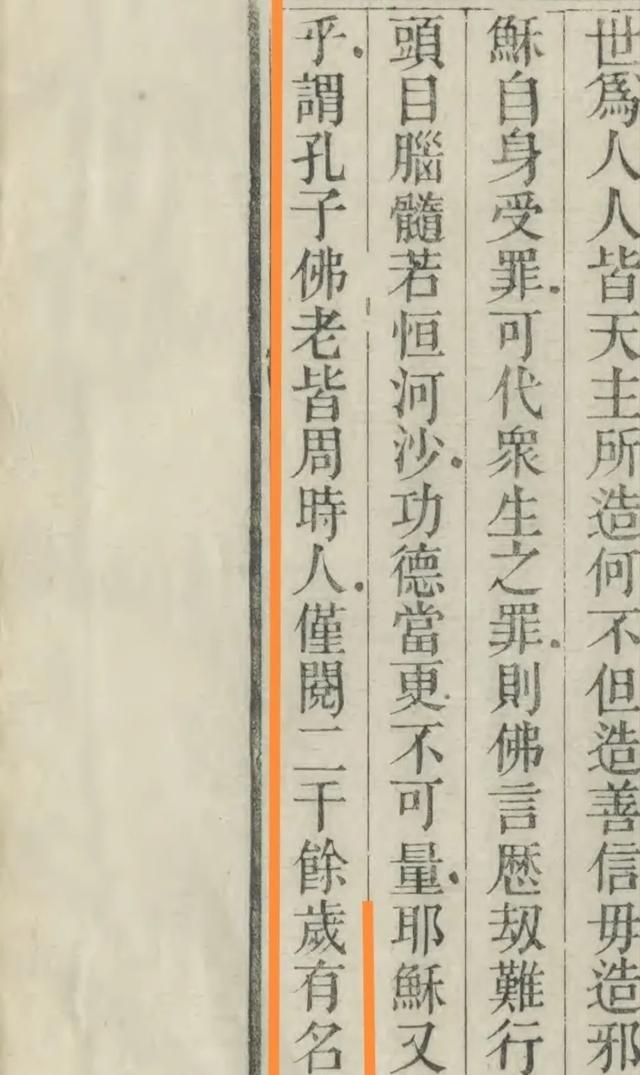 世爲人人皆天主所造何不但造善信毋造邪
穌自身受罪可代衆生之罪則佛言歷劫難行
頭目腦髓若恒河沙功德當更不可量耶穌又
乎謂孔子佛老皆周時人僅閱二千餘歲有名